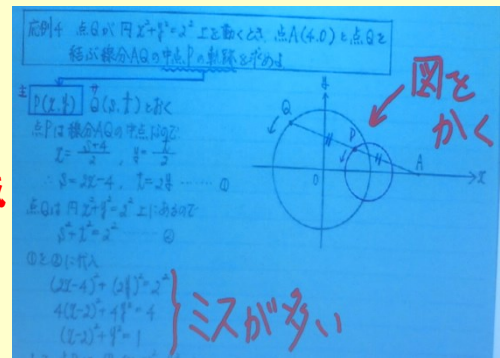 応例4 点Qが円x²+y²=2²上を動くとき,点A(4,0)と点Qを
結ぶ線分AQの中点Pの軌跡を求めよ
P(x,y) Q(s,t)とおく
点Pは線分AQの中点なので
x=(s+4)/2, y=t/2
∴ s=2x-4, t=2y ……①
点Qは円x²+y²=2²上にあるので
s²+t²=2² ……②
①を②に代入
(2x-4)²+(2y)²=2²
4(x-2)²+4y²=4
(x-2)²+y²=1
ミスが多い
図を
かく
y
Q
P
A
O
x